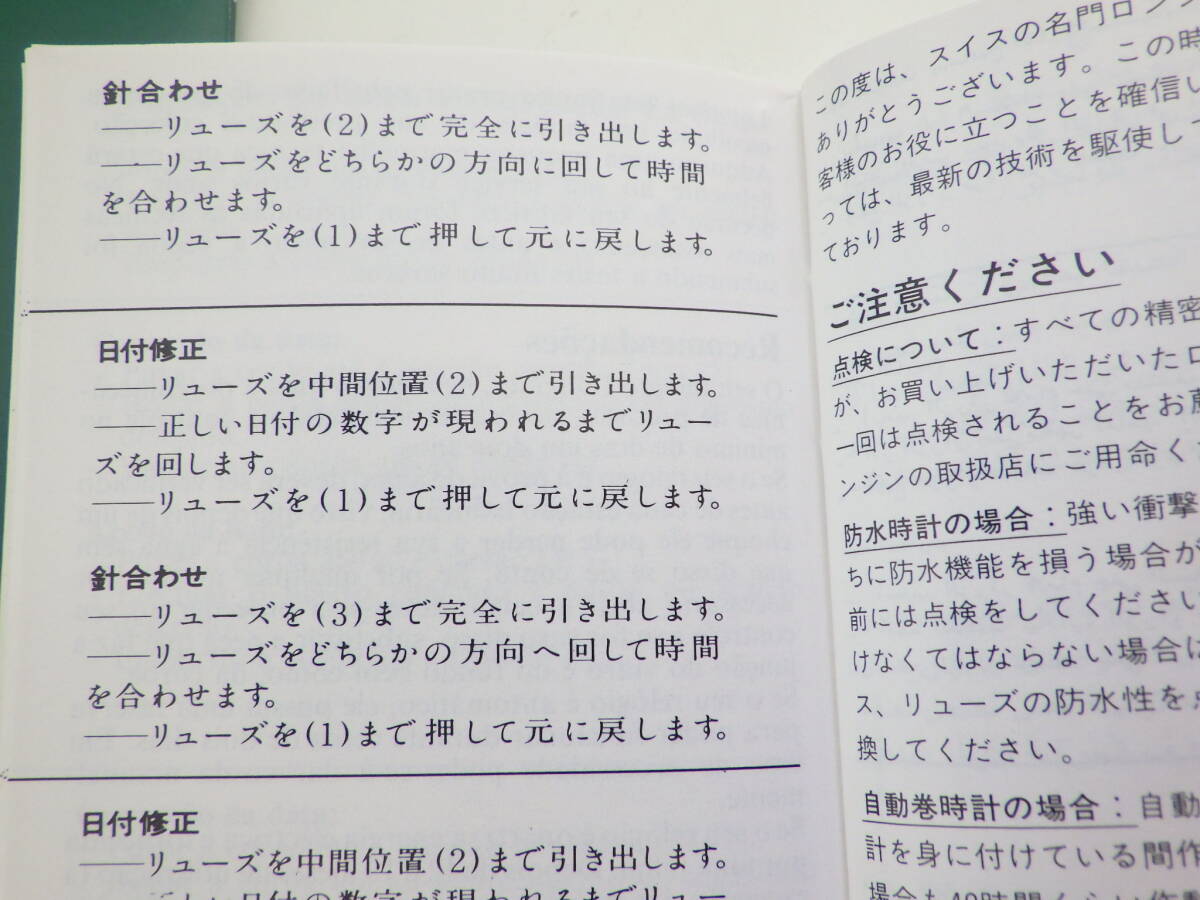 針合わせ
——リューズを(2)まで完全に引き出します。
——リューズをどちらかの方向に回して時間
を合わせます。
——リューズを(1)まで押して元に戻します。
日付修正
——リューズを中間位置(2)まで引き出します。
——正しい日付の数字が現われるまでリュー
ズを回します。
——リューズを(1)まで押して元に戻します。
針合わせ
——リューズを(3)まで完全に引き出します。
——リューズをどちらかの方向へ回して時間
を合わせます。
——リューズを(1)まで押して元に戻します。
日付修正
——リューズを中間位置(2)まで引き出します。
——正しい日付の数字が現われるまでリュー
この度は、スイスの名門ロンジ
ありがとうございます。この時
客様のお役に立つことを確信い
っては、最新の技術を駆使し
ております。
ご注意ください
点検について：すべての精密
が、お買い上げいただいたロ
一回は点検されることをお薦
ンジンの取扱店にご用命く
防水時計の場合：強い衝撃
ちに防水機能を損う場合が
前には点検をしてください
けなくてはならない場合は
ス、リューズの防水性を
換してください。
自動巻時計の場合：自動
計を身に付けている間作
場合も40時間くらい作動